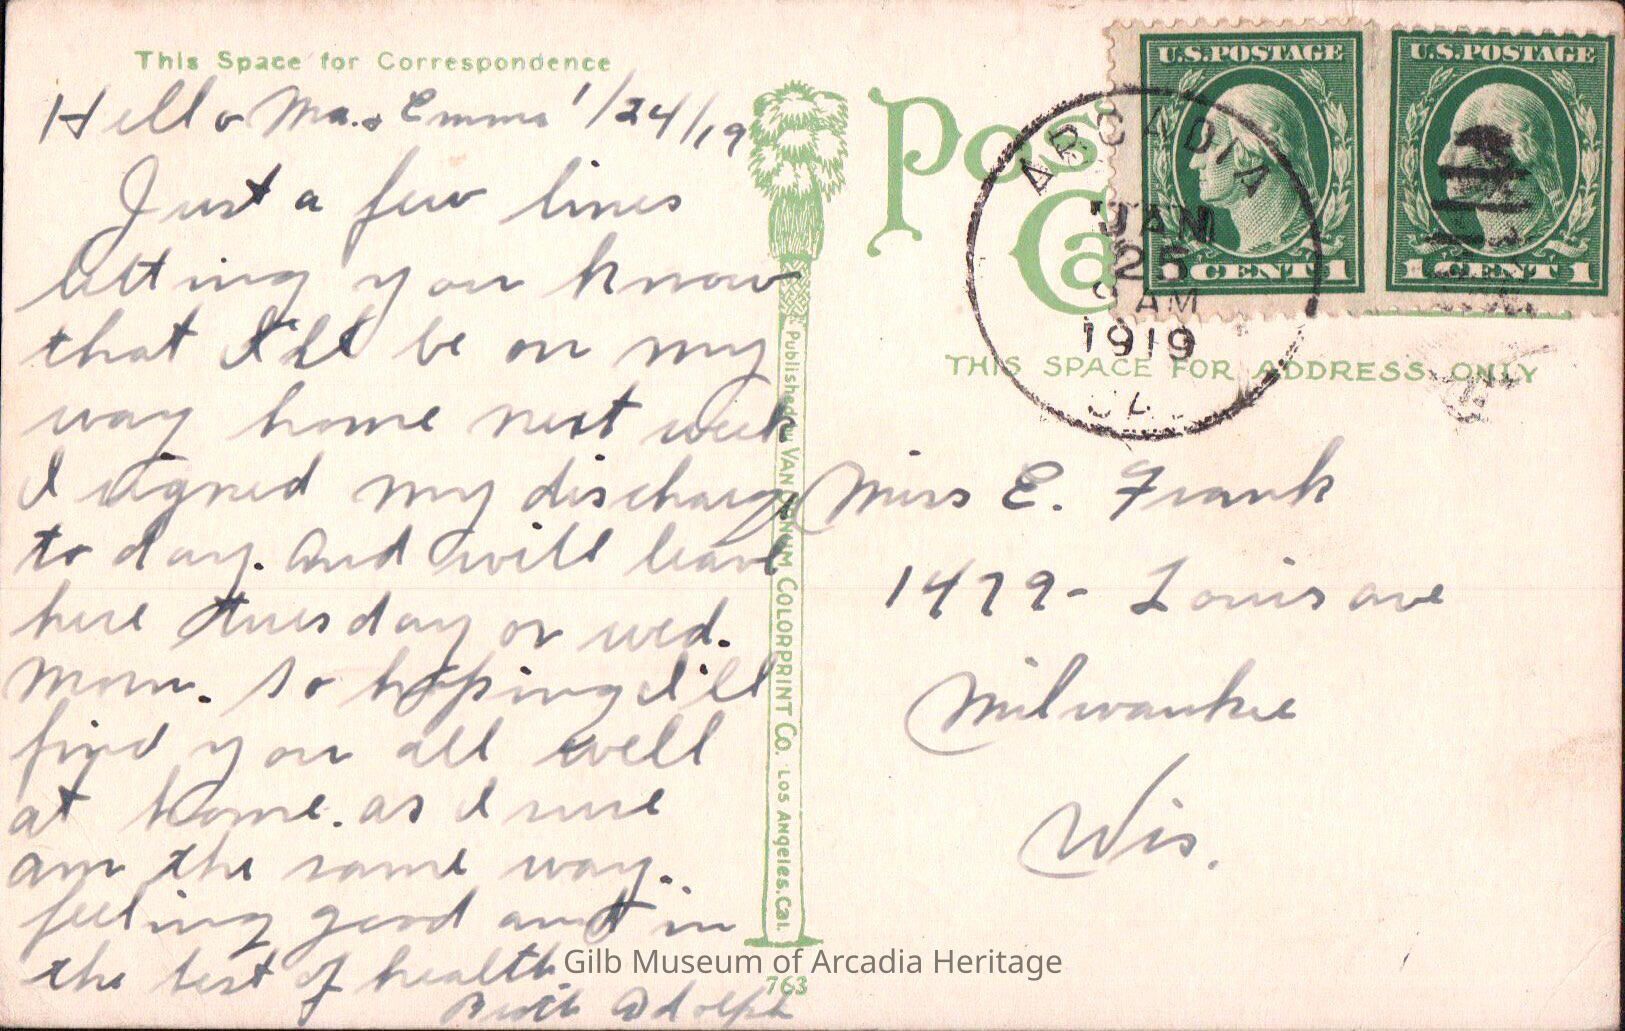 This Space for Correspondence
Hello Ma. & Emma 1/24/19
Just a few lines
letting you know
that I'll be on my
way home next week
I signed my discharge
to day. and will leave
here tuesday or wed.
morn. so hoping I'll
find you all well
at home. as I sure
am the same way.
feeling good and in
the best of health
Adolph
Published by VAN ORNUM COLORPRINT CO. LOS ANGELES, CAL.
763
Post
Ca
U.S. POSTAGE
1 CENT 1
U.S. POSTAGE
1 CENT 1
ARCADIA
JAN
25
9 AM
1919
CAL.
THIS SPACE FOR ADDRESS ONLY
Miss E. Frank
1479- Louis ave
Milwaukee
Wis.
Gilb Museum of Arcadia Heritage